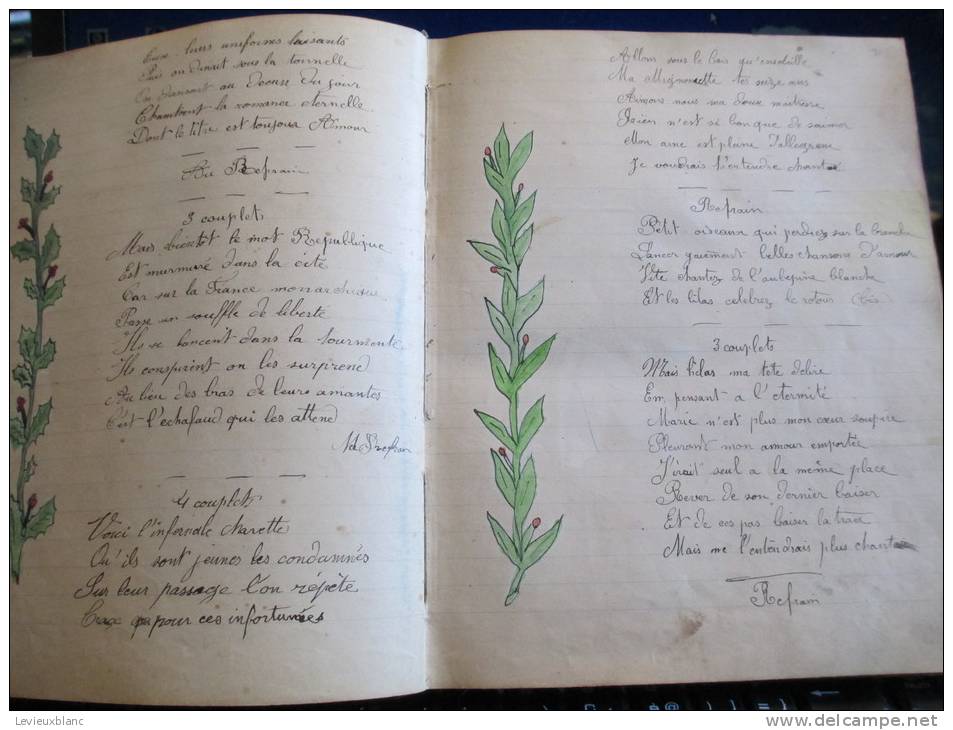 leurs uniformes luisants
Puis on dinait sous la tonnelle
En dansant au Douse du jour
Chantent la romance eternelle
Dont le titre est toujour Amour
Au Refrain
3 couplets
Mais bientot le mot Republique
Est murmuré dans la cité
Car sur la France monarchique
Passe un souffle de liberté
Ils se lancent dans la tourmente
Ils conspirent on les surprend
Au lieu des bras de leurs amantes
C'est l'echafaud qui les attend
Au Refrain
4 couplets
Voici l'infernale charette
Qu'ils sont jeunes les condamnés
Sur leur passage l'on répète
pour ces infortunées
Allons sous le bois qu'ensoleille
Ma Mignonette tes seize ans
Aimons nous ma douce maitresse
Rien n'est si bon que de s'aimer
Mon ame est pleine d'allegresse
Je voudrais t'entendre chanter
Refrain
Petit oiseaux qui perchez sur la branche
Lancer gaiement belles chansons d'amour
Vite chantez de l'aubepine blanche
Et les lilas celebrez le retour (bis)
3 couplets
Mais helas ma tete délire
En pensant a l'eternité
Marie n'est plus mon cœur soupire
Pleurant mon amour emportée
J'irait seul a la même place
Rever de son dernier baiser
Et de ces pas baiser la trace
Mais ne l'entendrais plus chanter
Refrain
Levieuxblanc
www.delcampe.net